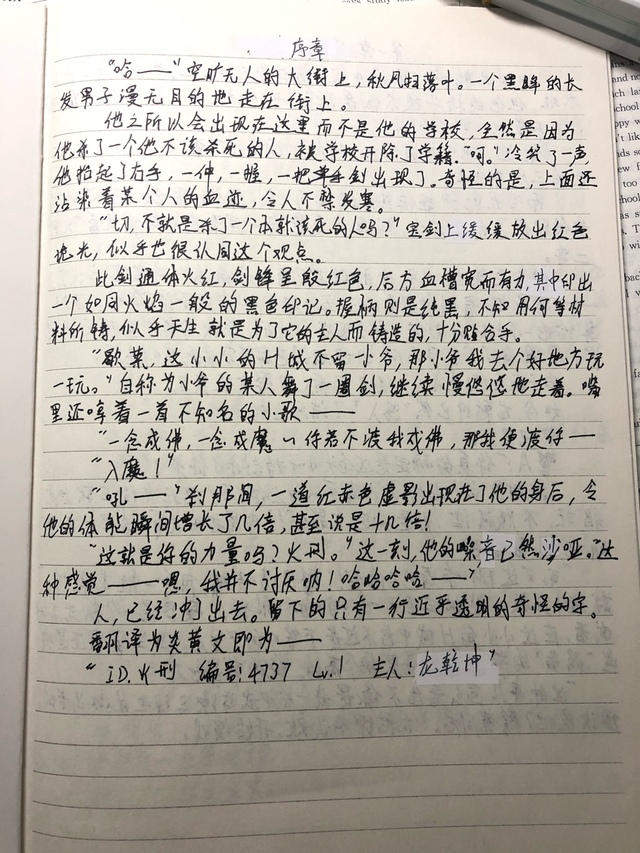 序章
“哈——”空旷无人的大街上，秋风扫落叶。一个黑眸的长
发男子漫无目的地走在街上。
他之所以会出现在这里而不是他的学校，全然是因为
他杀了一个他不该杀死的人，被学校开除了学籍。“呵。”冷笑了一声，
他抬起了右手，一伸，一握，一把单手剑出现了。奇怪的是，上面还
沾染着某个人的血迹，令人不禁发寒。
“切，不就是杀了一个本就该死的人吗？”宝剑上缓缓放出红色
诡光，似乎也很认同这个观点。
此剑通体火红，剑锋呈殷红色，后方血槽宽而有力，其中印出
一个如同火焰一般的黑色印记。握柄则是纯黑，不知用何等材
料所铸，似乎天生就是为了它的主人而铸造的，十分贴合手。
“欧莱，这小小的H城不留小爷，那小爷我去个好地方玩
一玩。”自称为小爷的某人舞了一圈剑，继续慢悠悠地走着。嘴
里还哼着一首不知名的小歌——
“一念成佛，一念成魔～你若不渡我成佛，那我便渡你——
“入魔！”
“吼——”刹那间，一道红赤色虚影出现在了他的身后，令
他的体能瞬间增长了几倍，甚至说是十几倍！
“这就是你的力量吗？火刑。”这一刻，他的嗓音已然沙哑。“这
种感觉——嗯，我并不讨厌呐！哈哈哈哈——”
人，已经冲了出去。留下的只有一行近乎透明的奇怪的字。
翻译为炎黄文即为——
“ID.火刑 编号：4737 Lv.1 主人：龙乾坤”